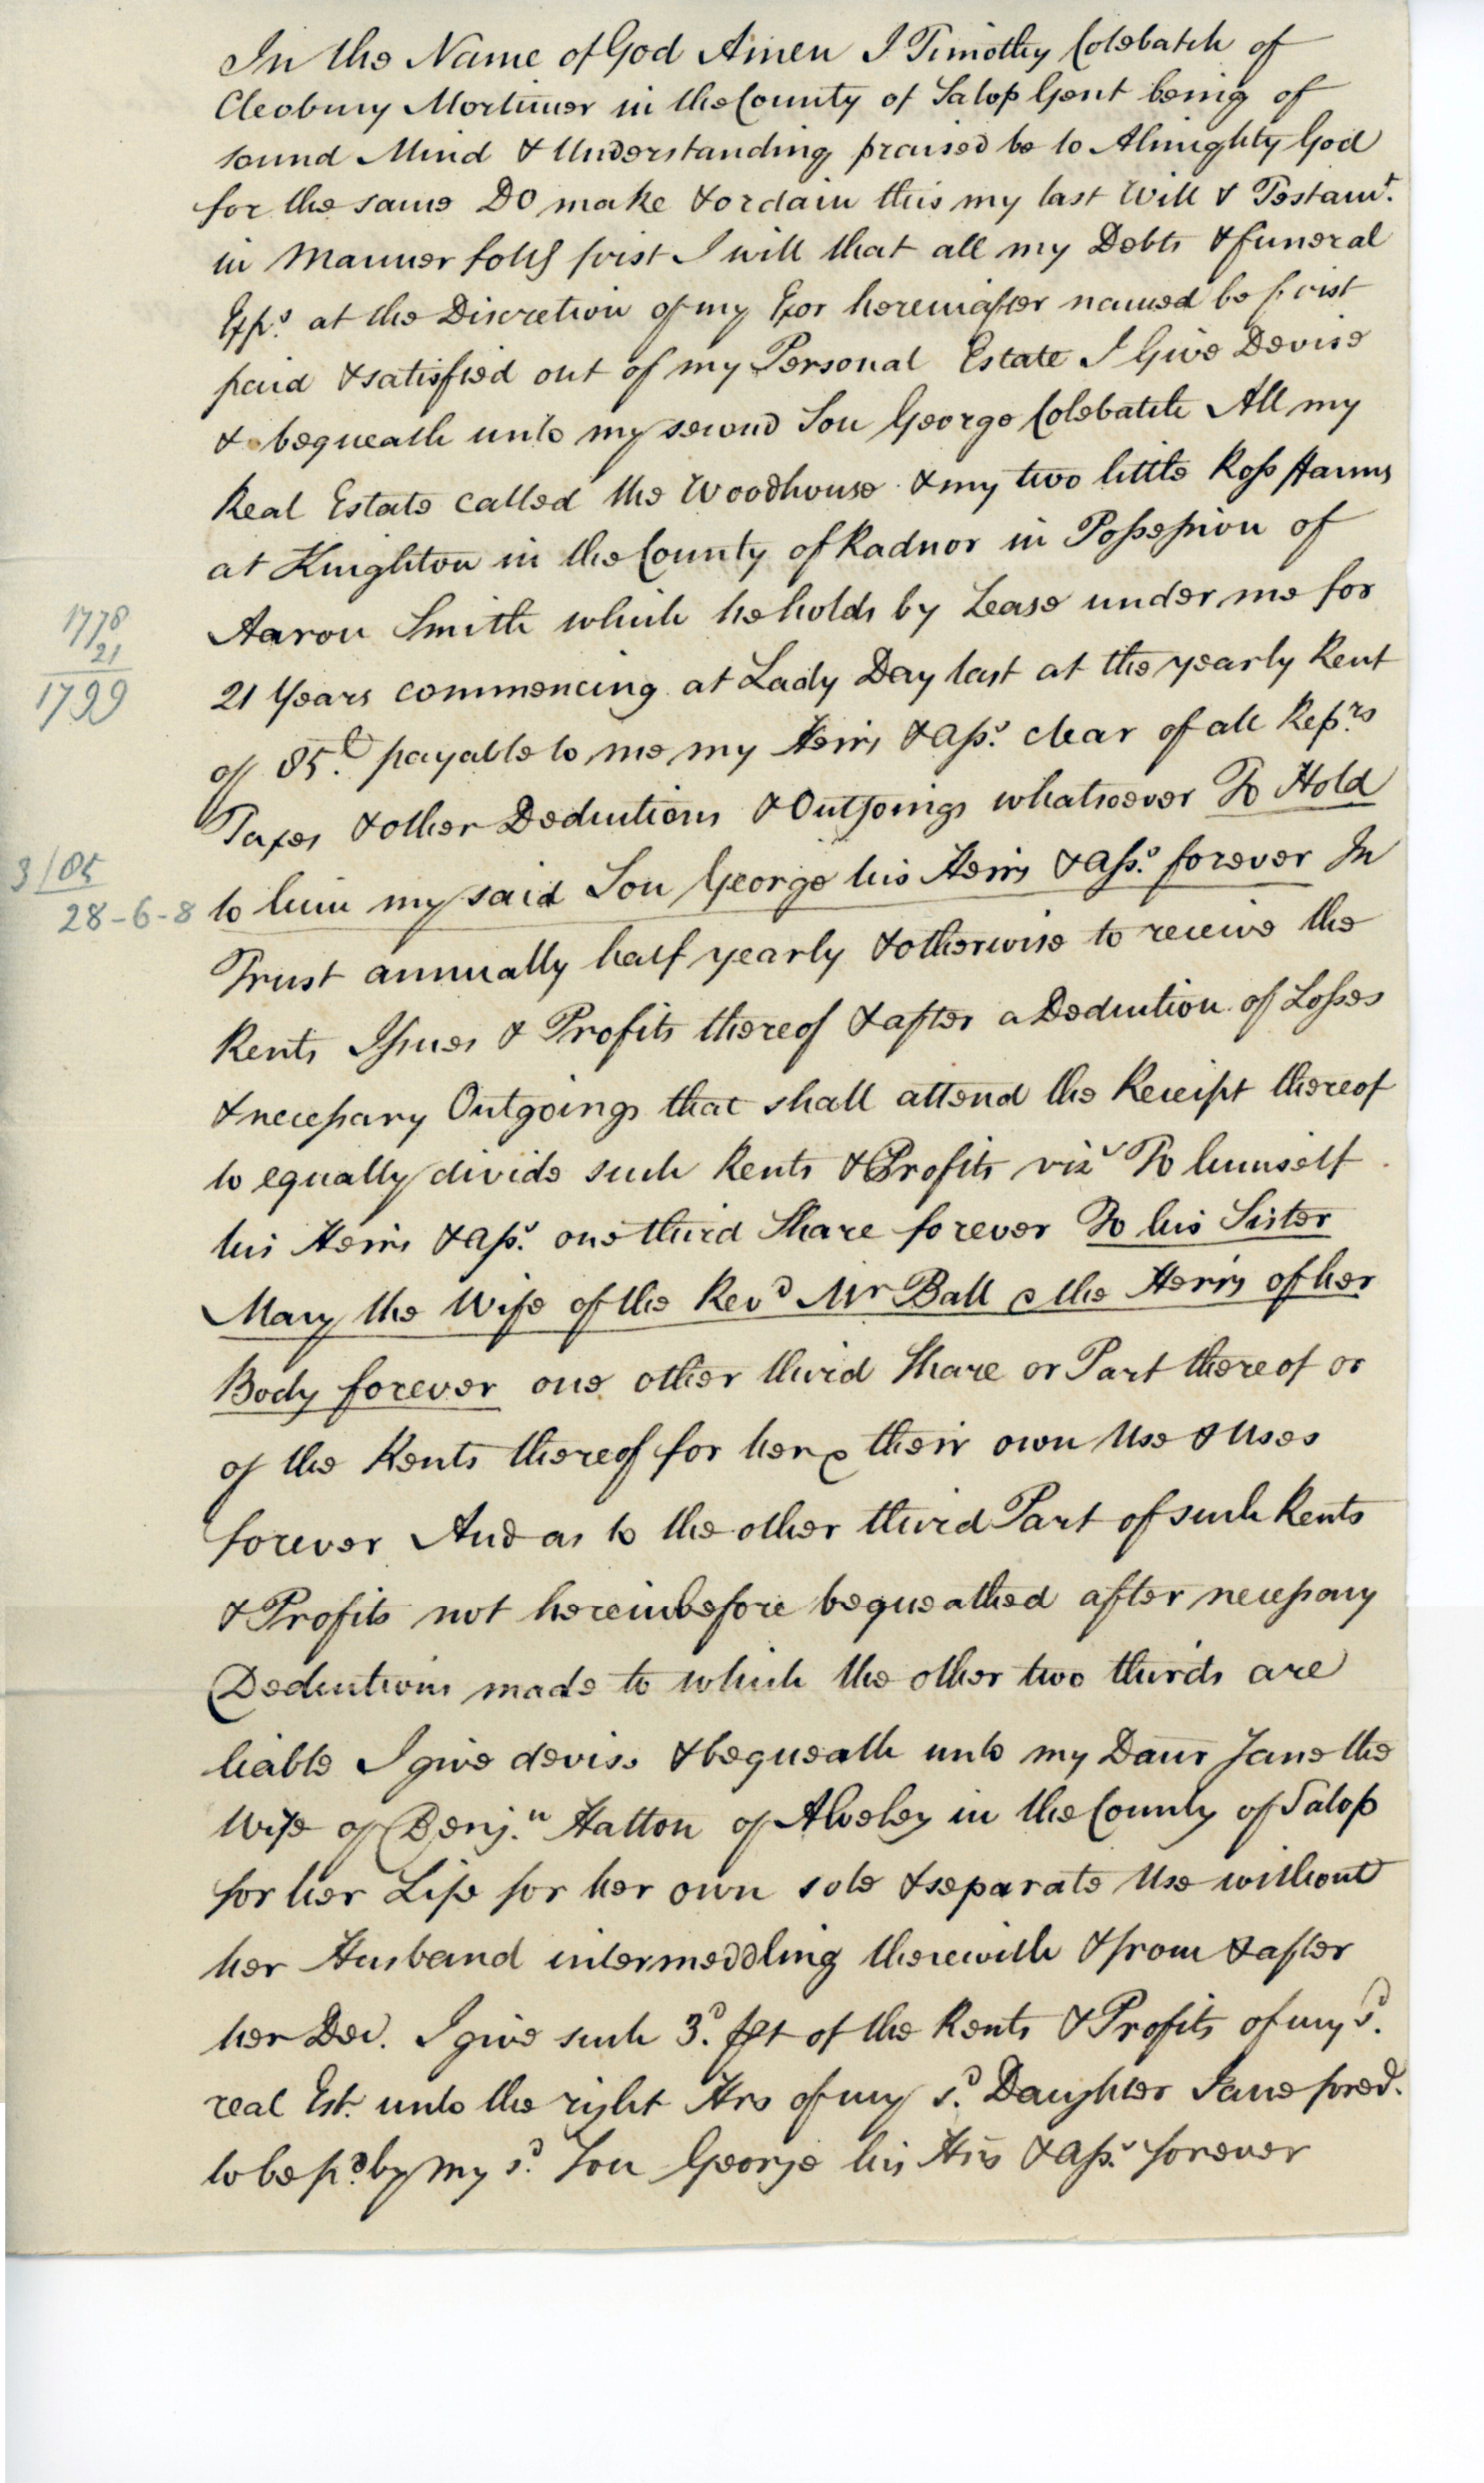 In the Name of God Amen I Timothy Colebatch of
Cleobury Mortimer in the County of Salop Gent being of
sound Mind & Understanding praised be to Almighty God
for the same Do make & ordain this my last Will & Testamt.
in Manner follg first I will that all my Debts & funeral
Exps. at the Discretion of my Exor hereinafter named be first
paid & satisfied out of my Personal Estate I Give Devise
& bequeath unto my second Son George Colebatch All my
Real Estate called the Woodhouse & my two little Ross ffarms
at Knighton in the County of Radnor in Possession of
Aaron Smith which he holds by Lease under me for
1778
21
1799
21 Years commencing at Lady Day last at the yearly Rent
of 85.£ payable to me my Heirs & Ass. clear of all Reprs
Taxes & other Deductions & Outgoings whatsoever To Hold
3/85
28-6-8
to him my said Son George his Heirs & Ass. forever In
Trust annually half yearly & otherwise to receive the
Rents Issues & Profits thereof & after a Deduction of Losses
& necessary Outgoings that shall attend the Receipt thereof
to equally divide such Rents & Profits viz To himself
his Heirs & Ass. one third Share forever To his Sister
Mary the Wife of the Revd Mr Ball & the Heirs of her
Body forever one other third Share or Part thereof or
of the Rents thereof for her & their own Use & Uses
forever And as to the other third Part of such Rents
& Profits not hereinbefore bequeathed after necessary
Deductions made to which the other two thirds are
liable I give devise & bequeath unto my Daur Jane the
Wife of Benj.n Hatton of Alveley in the County of Salop
for her Life for her own sole & separate Use without
her Husband intermeddling therewith & from & after
her Dec. I give such 3.d Pt of the Rents & Profits of my s.d
real Est. unto the right Hrs of my s.d Daughter Jane fored.
to be p.d by my s.d Son George his Hrs & Ass. forever